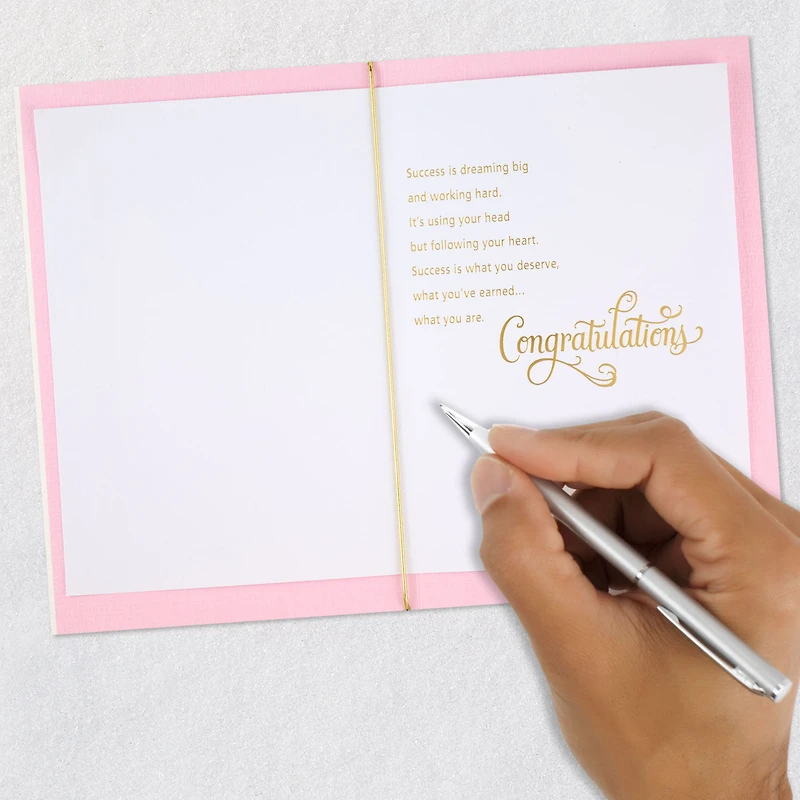 Success is dreaming big
and working hard.
It's using your head
but following your heart.
Success is what you deserve,
what you've earned...
what you are.
Congratulations